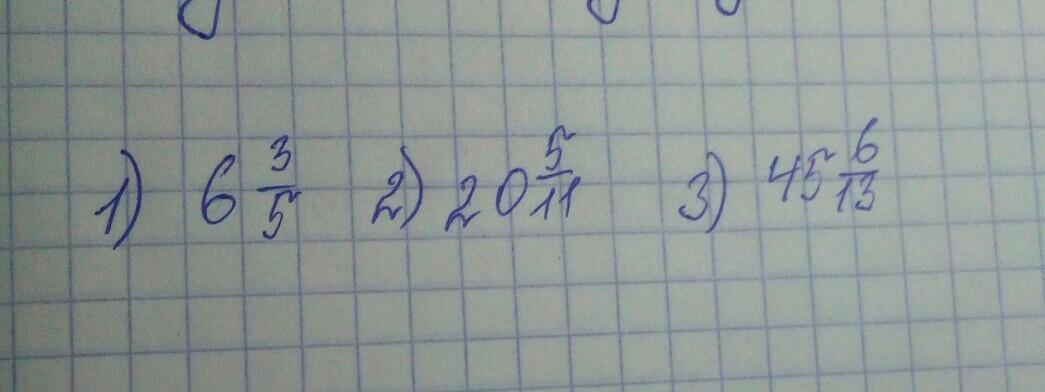 1) 6 3/5 2) 20 5/11 3) 45 6/13